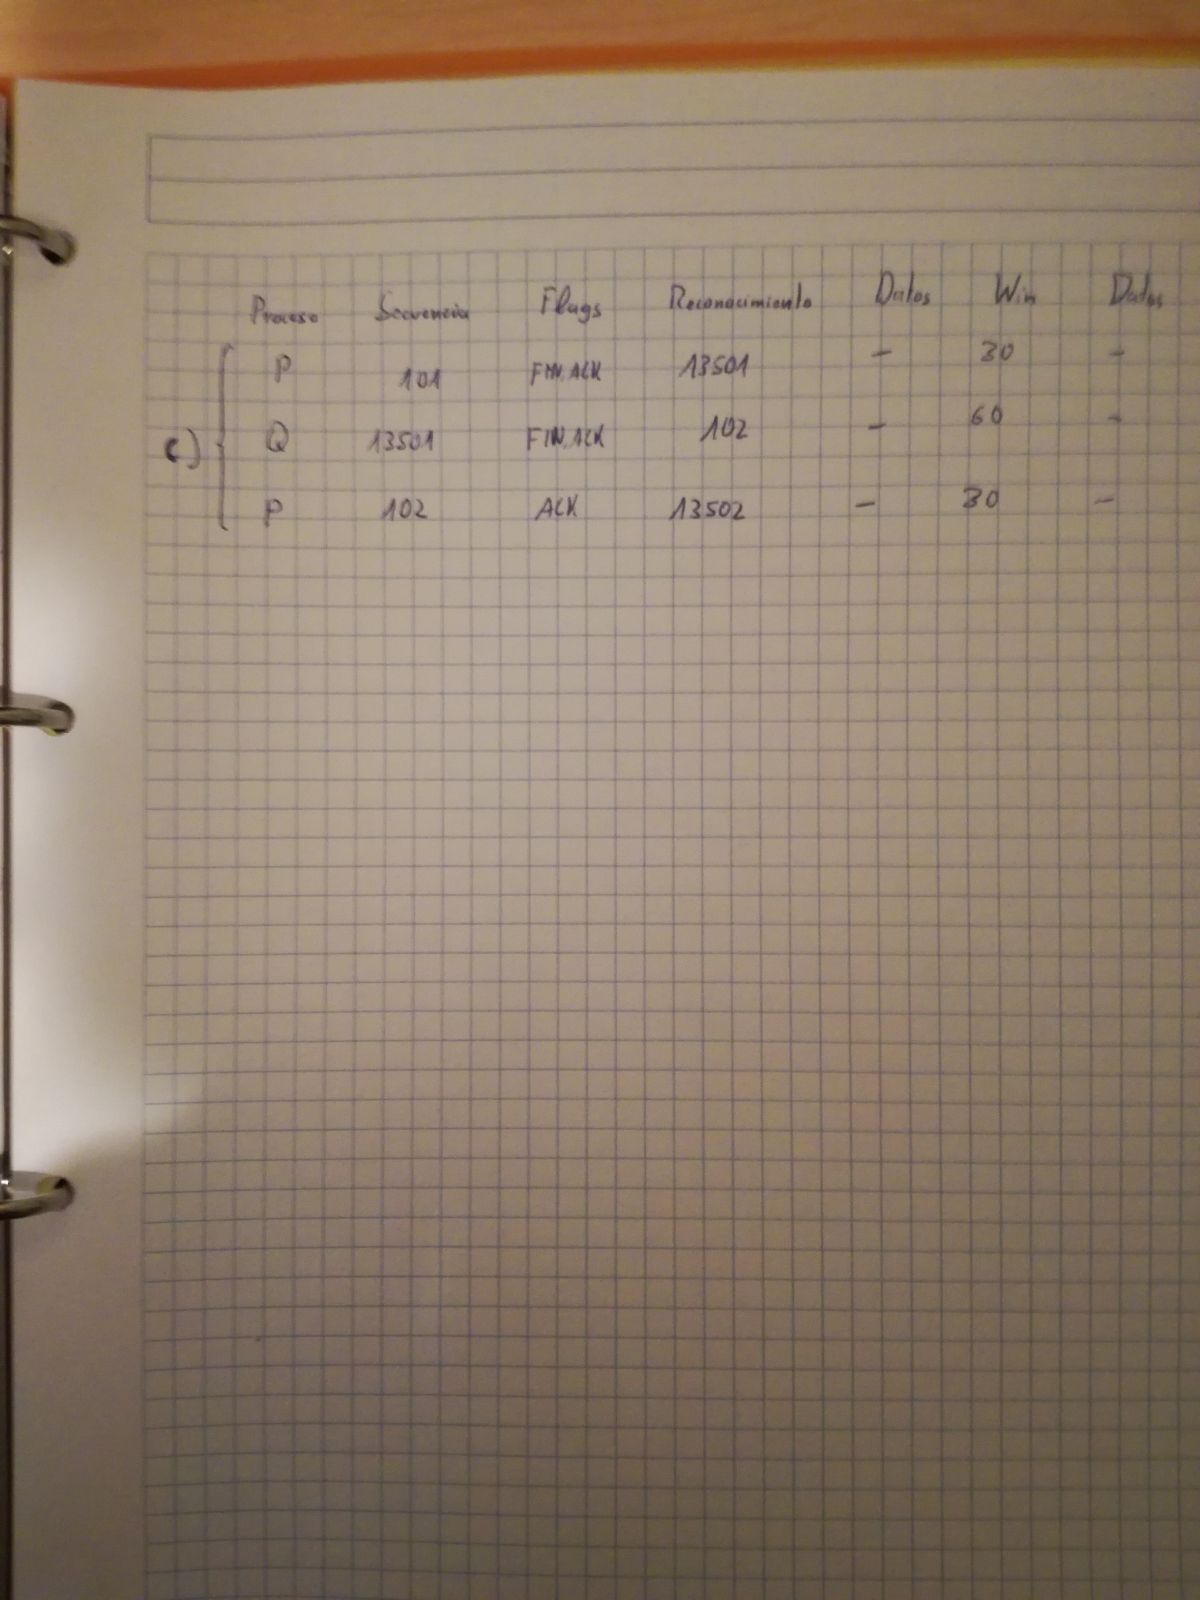 Proceso Secuencia Flags Reconocimiento Datos Win Datos
P 101 FIN,ACK 13501 - 30 -
c) Q 13501 FIN,ACK 102 - 60 -
P 102 ACK 13502 - 30 -